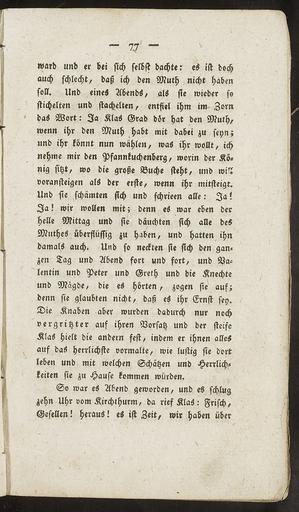 — 77 —
ward und er bei sich selbst dachte: es ist doch
auch schlecht, daß ich den Muth nicht haben
soll. Und eines Abends, als sie wieder so
stichelten und stachelten, entfiel ihm im Zorn
das Wort: Ja Klas Grad dör hat den Muth,
wenn ihr den Muth habt mit dabei zu seyn;
und ihr könnt nun wählen, was ihr wollt, ich
nehme mir den Pfannkuchenberg, worin der Kö-
nig sitzt, wo die große Buche steht, und will
voransteigen als der erste, wenn ihr mitsteigt.
Und sie schämten sich und schrieen alle: Ja!
Ja! wir wollen mit; denn es war eben der
helle Mittag und sie däuchten sich alle des
Muthes überflüssig zu haben, und hatten ihn
damals auch. Und so neckten sie sich den gan-
zen Tag und Abend fort und fort, und Va-
lentin und Peter und Greth und die Knechte
und Mägde, die es hörten, zogen sie auf;
denn sie glaubten nicht, daß es ihr Ernst sey.
Die Knaben aber wurden dadurch nur noch
vergritzter auf ihren Vorsatz und der steife
Klas hielt die andern fest, indem er ihnen alles
auf das herrlichste vormalte, wie lustig sie dort
leben und mit welchen Schätzen und Herrlich-
keiten sie zu Hause kommen würden.
So war es Abend geworden, und es schlug
zehn Uhr vom Kirchthurm, da rief Klas: Frisch,
Gesellen! heraus! es ist Zeit, wir haben über